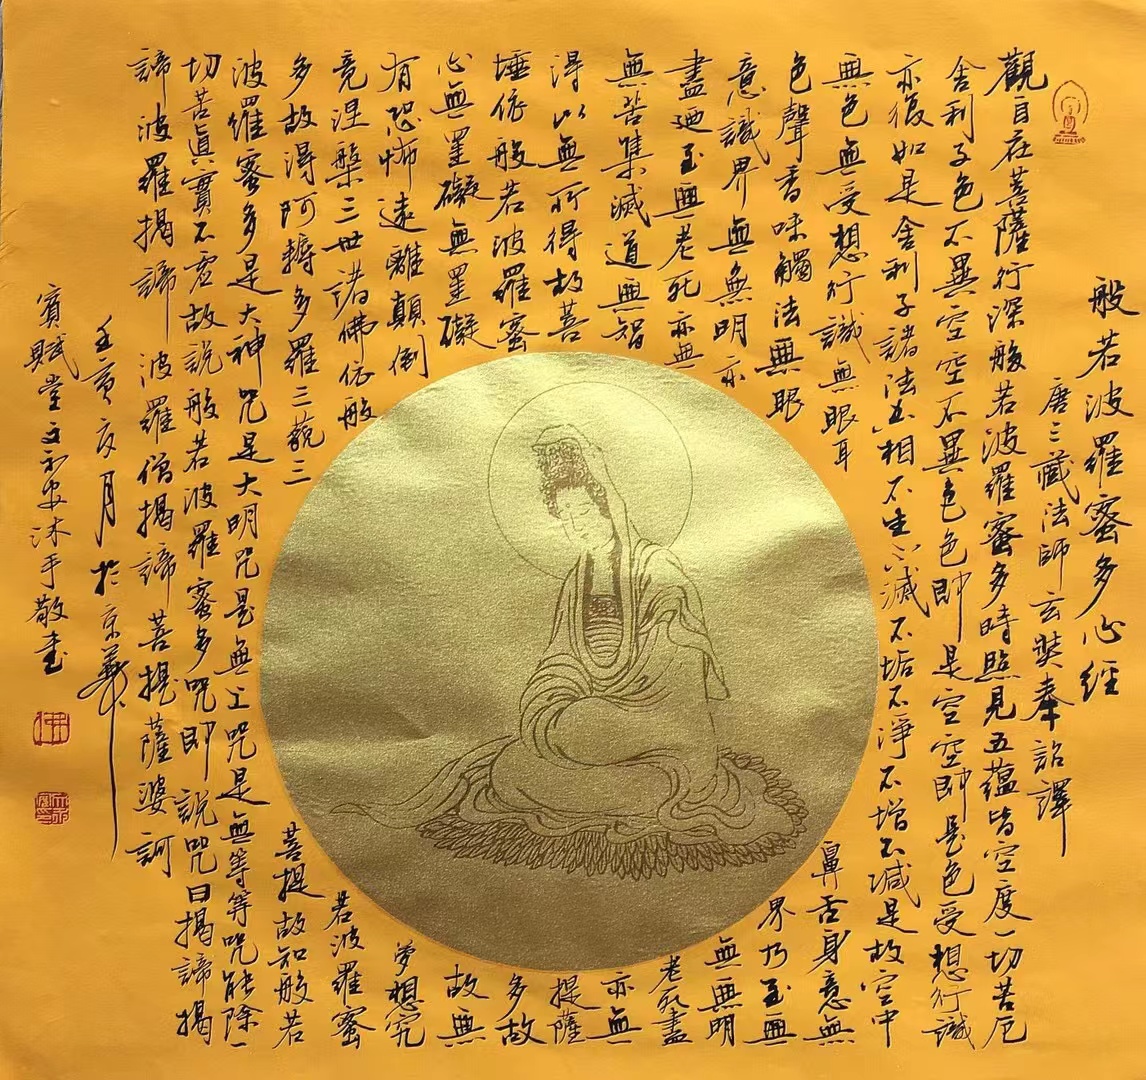 般若波羅蜜多心經
唐三藏法師玄奘奉詔譯
觀自在菩薩行深般若波羅蜜多時照見五蘊皆空度一切苦厄
舍利子色不異空空不異色色即是空空即是色受想行識
亦復如是舍利子諸法空相不生不滅不垢不淨不增不減是故空中
無色無受想行識無眼耳鼻舌身意無
色聲香味觸法無眼界乃至無
意識界無無明亦無無明
盡廼至無老死亦無老死盡
無苦集滅道無智亦無
得以無所得故菩提薩
埵依般若波羅蜜多故
心無罣礙無罣礙故無
有恐怖遠離顛倒夢想究
竟涅槃三世諸佛依般若波羅蜜
多故得阿耨多羅三藐三菩提故知般若
波羅蜜多是大神咒是大明咒是無上咒是無等等咒能除一
切苦真實不虛故說般若波羅蜜多咒即說咒曰揭諦揭
諦波羅揭諦波羅僧揭諦菩提薩婆訶
壬寅月於京華
賓賦堂文沐手敬書
佛